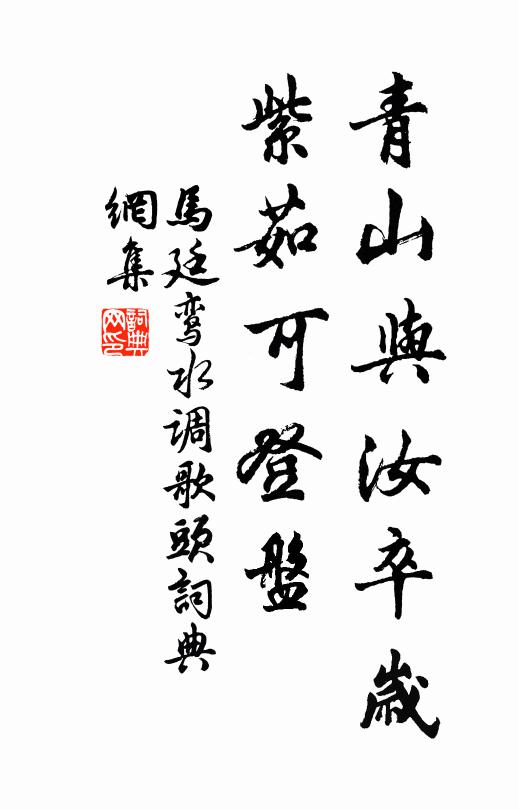 青山與汝卒歲
紫茹可登盤
馬廷鸾水调歌頭詞典
網集
詞典
网印